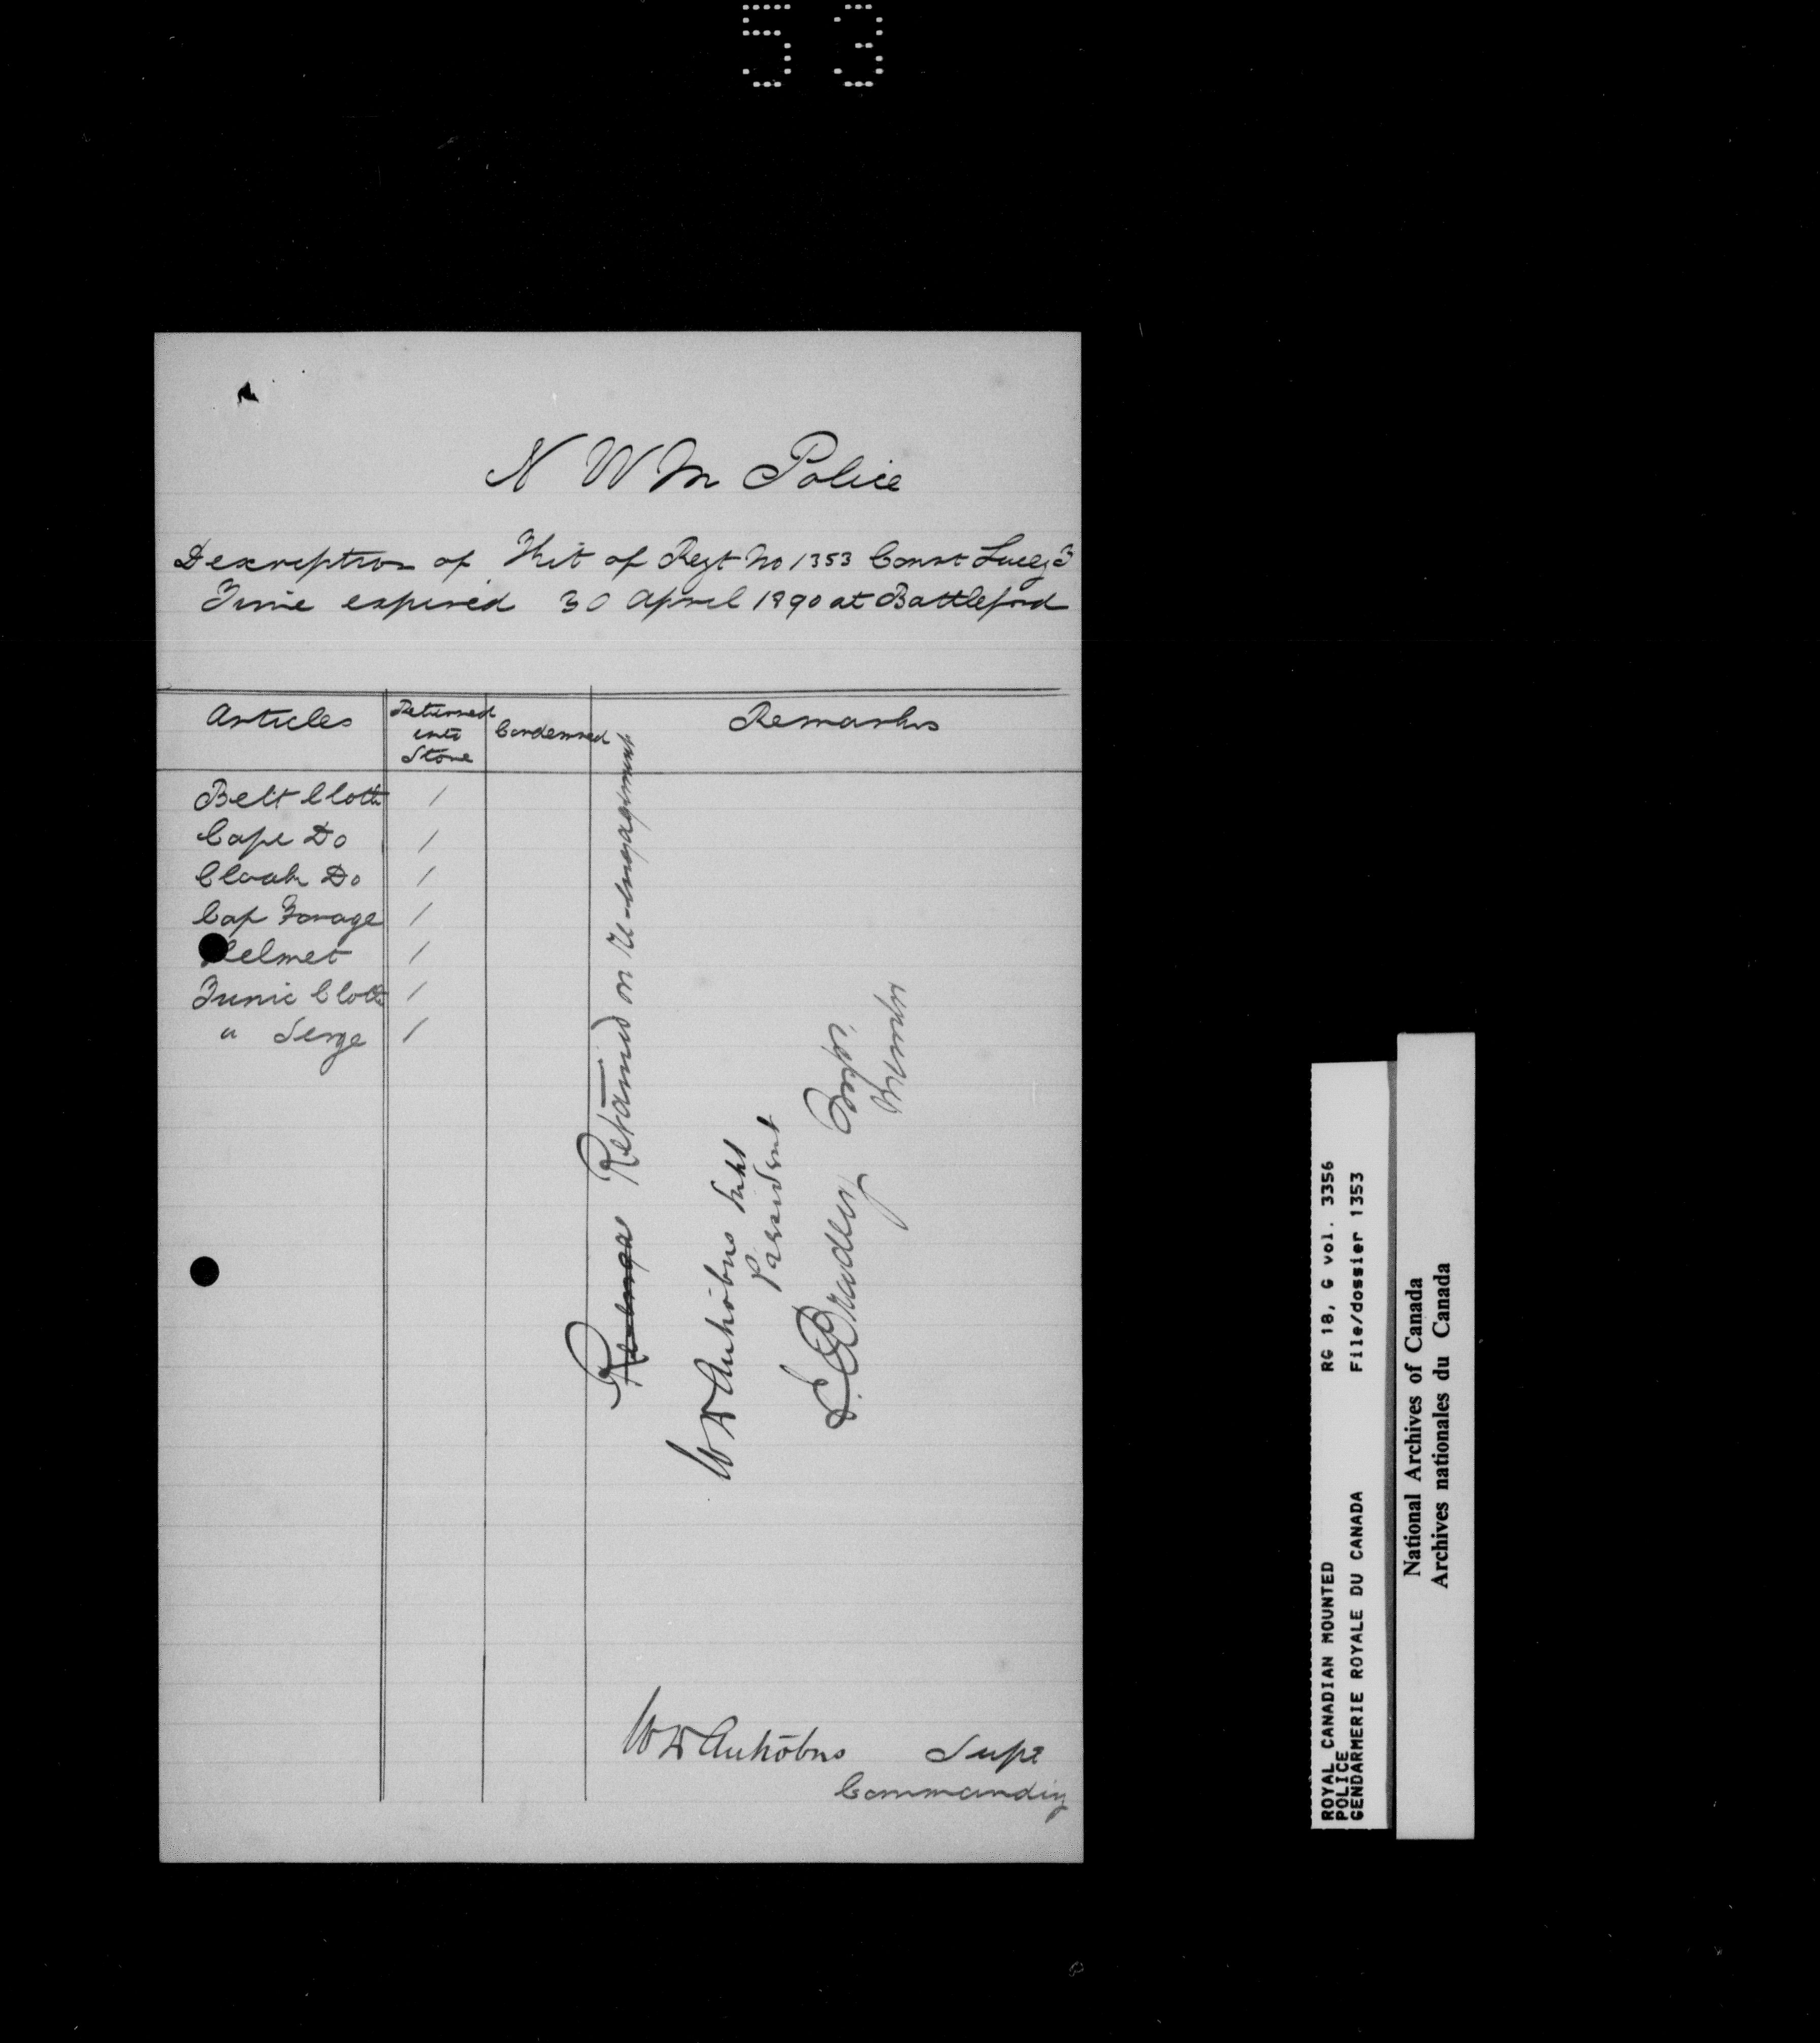 53
N W M Police
Description of Kit of Regt No 1353 Const Lucey
Time expired 30 April 1890 at Battleford
Articles
Returned into Store
Condemned
Remarks
Belt Cloth /
Cape Do /
Cloak Do /
Cap Forage /
Helmet /
Tunic Cloth /
" Serge /
Retained on Re-engagement
W D Antrobus Supt
President
Bradley
Member
W D Antrobus Supt
Commanding
ROYAL CANADIAN MOUNTED RG 18, G vol. 3356
POLICE
GENDARMERIE ROYALE DU CANADA File/dossier 1353
National Archives of Canada
Archives nationales du Canada